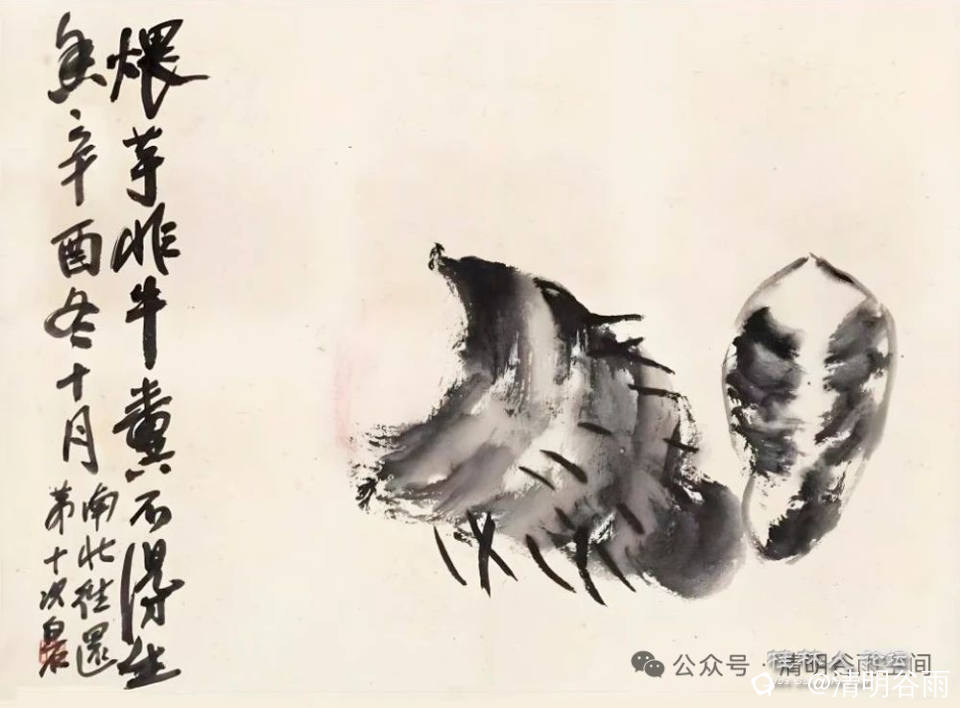 煨芋非牛糞不得生
香辛酉冬十月
南北往還
第十次白石
公众号·清明谷雨空间
@清明谷雨